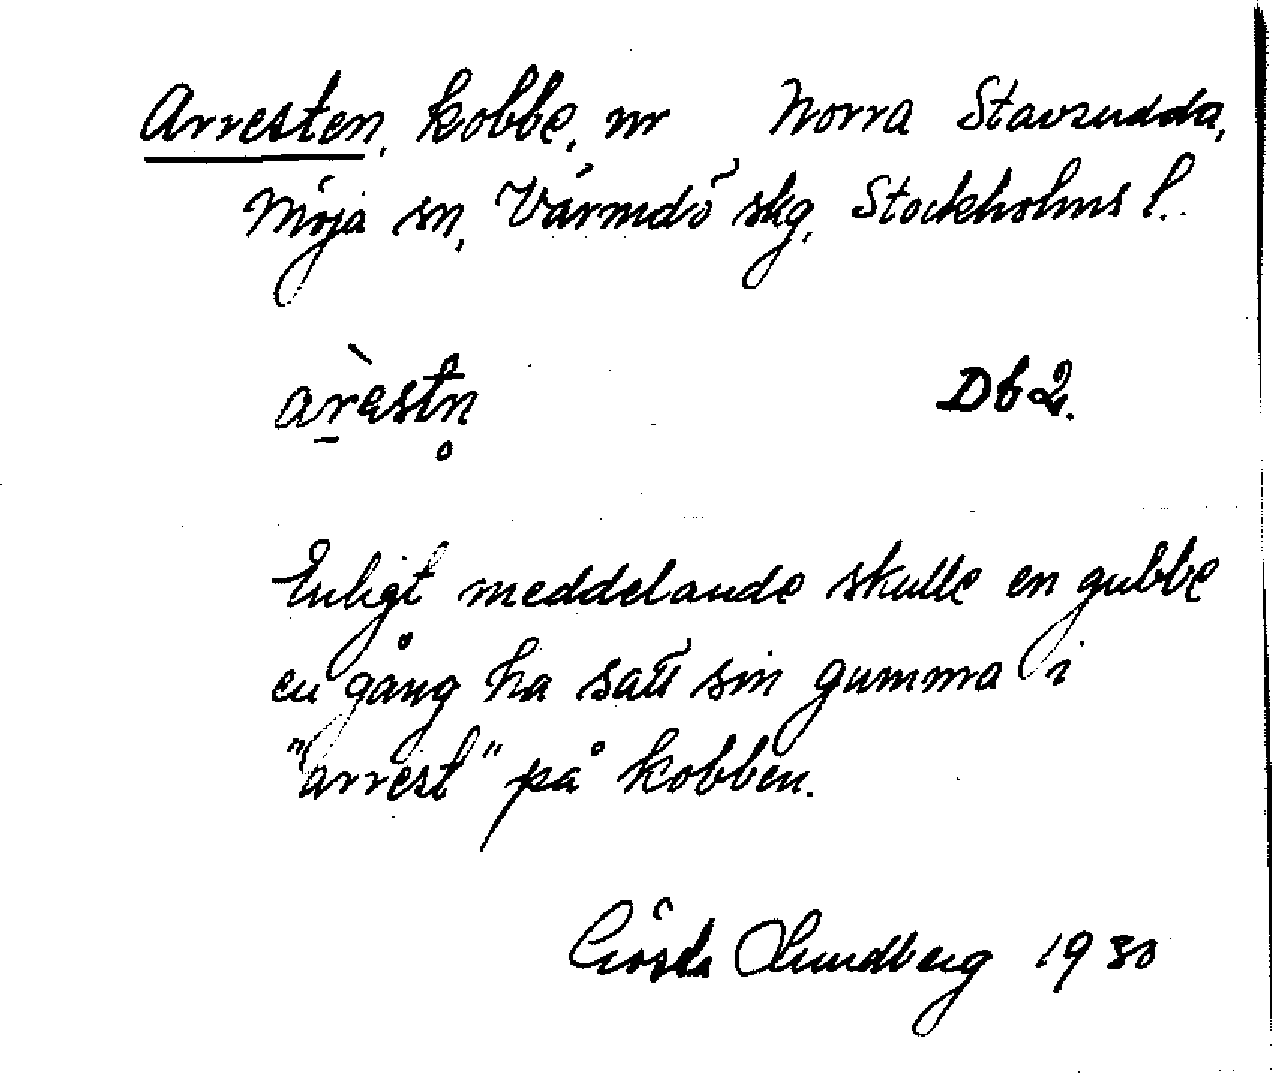 Arresten, kobbe, nr Norra Stavsudda,
Möja sn, Värmdö skg, Stockholms l.
arèstn̥ Db 2.
Enligt meddelande skulle en gubbe
en gång ha satt sin gumma i
"arrest" på kobben.
Gösta Lundberg 1930